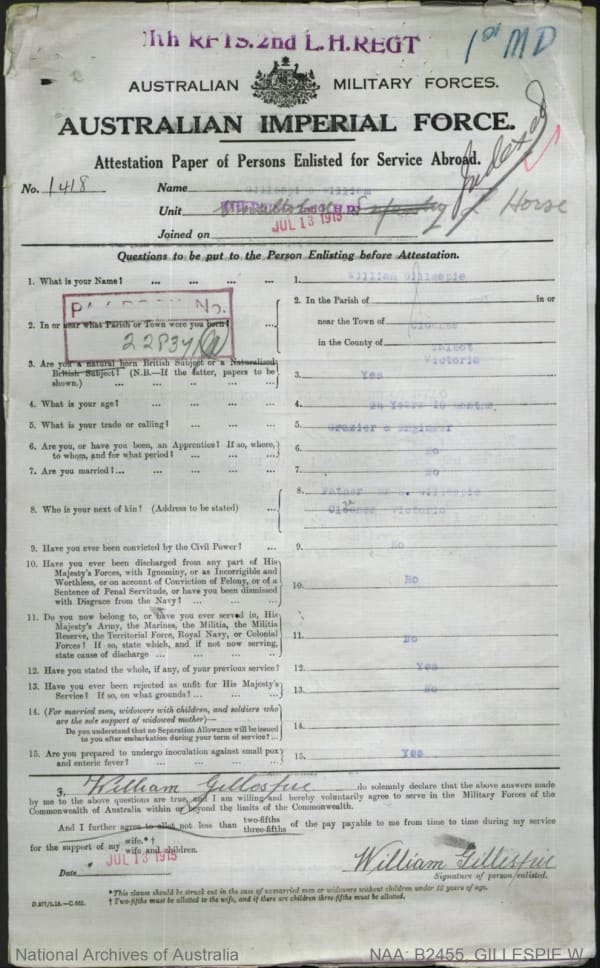 11th RFTS. 2nd L.H. REGT
1st MD
AUSTRALIAN MILITARY FORCES.
AUSTRALIAN IMPERIAL FORCE.
Indexed
Attestation Paper of Persons Enlisted for Service Abroad.
No. 1418 Name Gillespie William
Unit Horse
Joined on JUL 13 1915
Questions to be put to the Person Enlisting before Attestation.
1. What is your Name? ... ... ... ... 1. William Gillespie
No.
22837
2. In or near what Parish or Town were you born? ... 2. In the Parish of in or
near the Town of Clounes
in the County of Talbot
Victoria
3. Are you a natural born British Subject or a Naturalized
British Subject? (N.B.—If the latter, papers to be
shown.) ... ... ... ... 3. Yes
4. What is your age? ... ... ... ... 4. 24 Years 10 months
5. What is your trade or calling? ... ... ... 5. Grazier & Engineer
6. Are you, or have you been, an Apprentice? If so, where,
to whom, and for what period? ... ... ... 6. No
7. Are you married?... ... ... ... ... 7. No
8. Who is your next of kin? (Address to be stated) ... 8. Father Mr Gillespie
Clounes Victoria
9. Have you ever been convicted by the Civil Power? ... 9. No
10. Have you ever been discharged from any part of His
Majesty's Forces, with Ignominy, or as Incorrigible and
Worthless, or on account of Conviction of Felony, or of a
Sentence of Penal Servitude, or have you been dismissed
with Disgrace from the Navy? ... ... ... 10. No
11. Do you now belong to, or have you ever served in, His
Majesty's Army, the Marines, the Militia, the Militia
Reserve, the Territorial Force, Royal Navy, or Colonial
Forces? If so, state which, and if not now serving,
state cause of discharge ... ... ... ... 11. No
12. Have you stated the whole, if any, of your previous service? 12. Yes
13. Have you ever been rejected as unfit for His Majesty's
Service? If so, on what grounds? ... ... ... 13. No
14. (For married men, widowers with children, and soldiers who
are the sole support of widowed mother)—
Do you understand that no Separation Allowance will be issued
to you after embarkation during your term of service?... 14.
15. Are you prepared to undergo inoculation against small pox
and enteric fever? ... ... ... ... 15. Yes
I, William Gillespie do solemnly declare that the above answers made
by me to the above questions are true, and I am willing and hereby voluntarily agree to serve in the Military Forces of the
Commonwealth of Australia within or beyond the limits of the Commonwealth.
And I further agree to allot not less than two-fifths three-fifths of the pay payable to me from time to time during my service
for the support of my wife.*† wife and children.
Date JUL 13 1915
William Gillespie
Signature of person enlisted.
*This clause should be struck out in the case of unmarried men or widowers without children under 18 years of age.
† Two-fifths must be allotted to the wife, and if there are children three-fifths must be allotted.
National Archives of Australia
NAA: B2455, GILLESPIE W